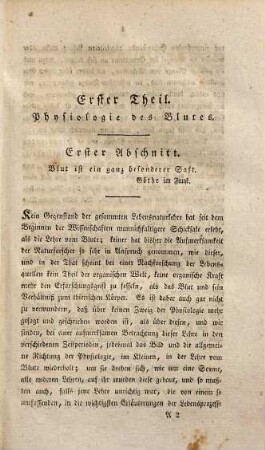 Erster Theil.
Physiologie des Blutes.
Erster Abschnitt.
Blut ist ein ganz besonderer Saft.
Göthe im Faust.
Kein Gegenstand der gesammten Lebensnaturlehre hat seit dem
Beginnen der Wissenschaften mannichfaltigere Schicksale erlebt,
als die Lehre vom Blute; keiner hat bisher die Aufmerksamkeit
der Naturforscher so sehr in Anspruch genommen, wie dieser,
und in der That schien bei einer Nachforschung der Lebens-
quellen kein Theil der organischen Welt, keine organische Kraft
mehr den Erforschungsgeist zu fesseln, als das Blut und sein
Verhältniß zum thierischen Körper. Es ist daher auch gar nicht
zu verwundern, daß über keinen Zweig der Physiologie mehr
gesagt und geschrieben worden ist, als über diesen, und wir
finden, bei einer aufmerksamen Betrachtung dieser Lehre in den
verschiedenen Zeitperioden, jedesmal das Bild und die allgemei-
ne Richtung der Physiologie, im Kleinen, in der Lehre vom
Blute wiederholt; um sie drehen sich, wie um eine Sonne,
alle anderen Lehren, auf ihr wurden diese gebaut, und so muß-
ten auch, falls jene Lehre unrichtig war, die von einem so
umfassenden, in die wichtigsten Erläuterungen der Lebensprozesse
A 2